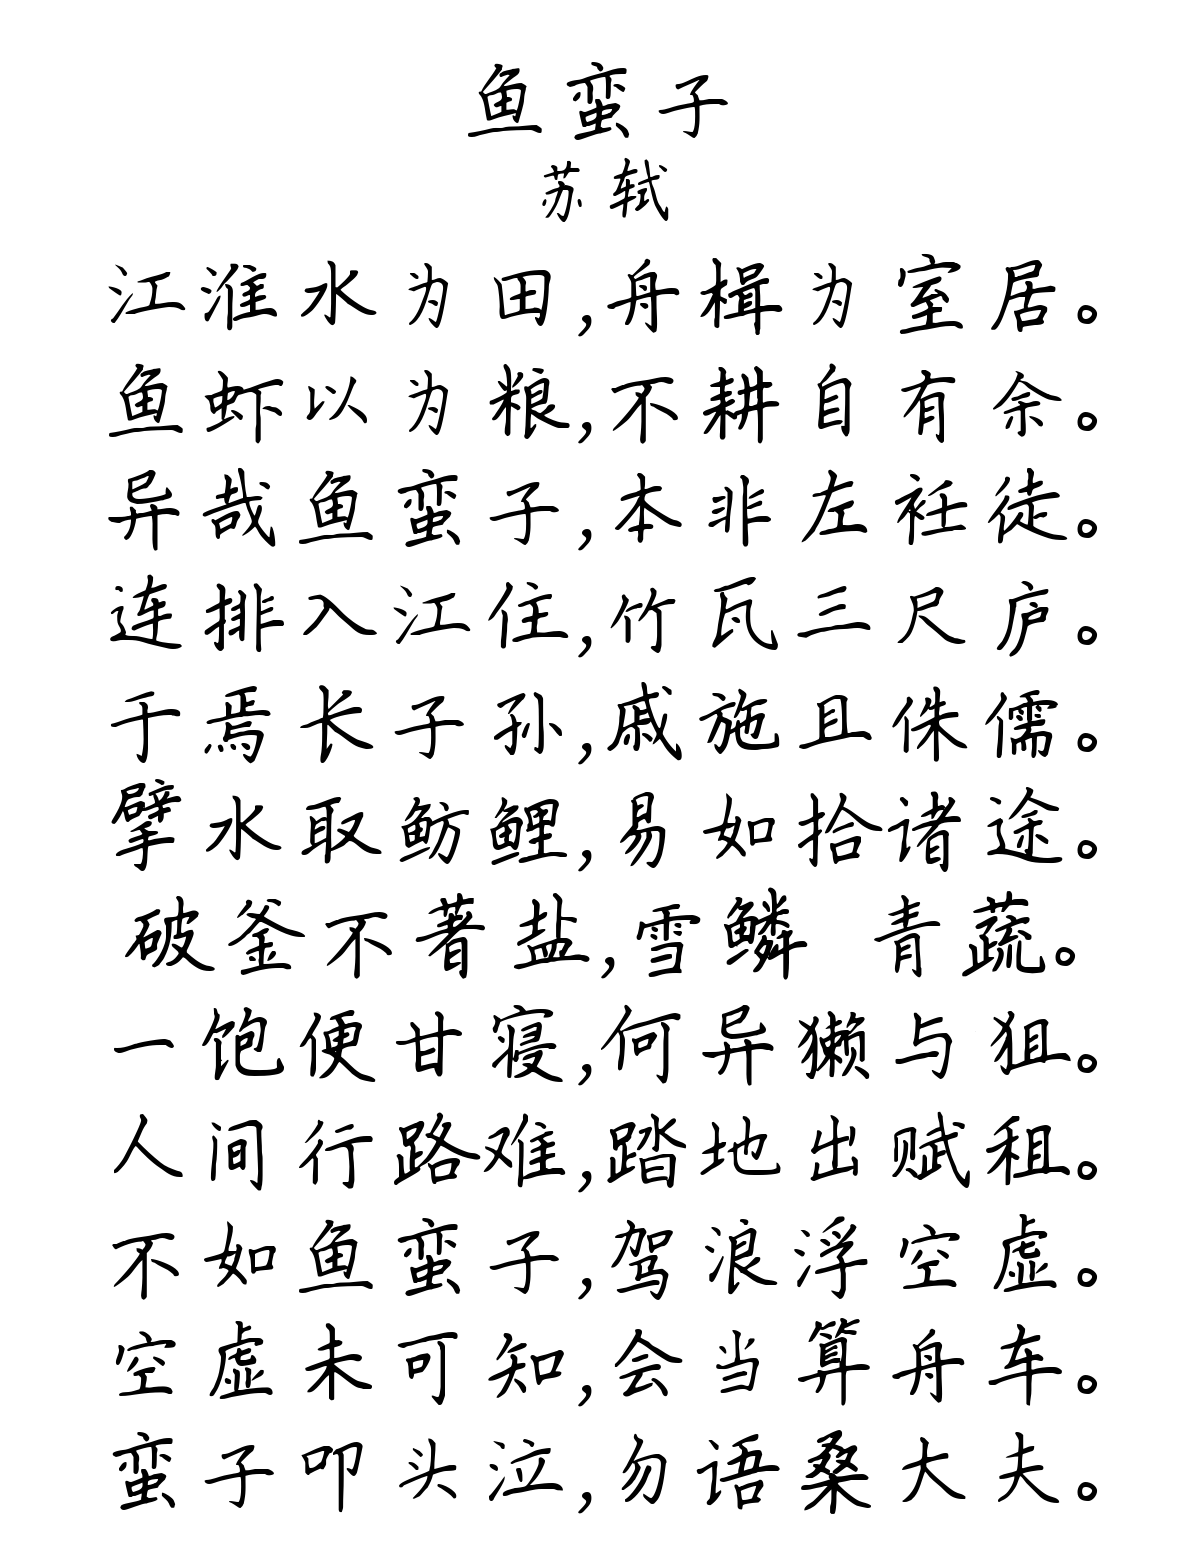 鱼蛮子
苏轼
江淮水为田,舟楫为室居。
鱼虾以为粮,不耕自有余。
异哉鱼蛮子,本非左衽徒。
连排入江住,竹瓦三尺庐。
于焉长子孙,戚施且侏儒。
擘水取鲂鲤,易如拾诸途。
破釜不著盐,雪鳞 青蔬。
一饱便甘寝,何异獭与狙。
人间行路难,踏地出赋租。
不如鱼蛮子,驾浪浮空虚。
空虚未可知,会当算舟车。
蛮子叩头泣,勿语桑大夫。